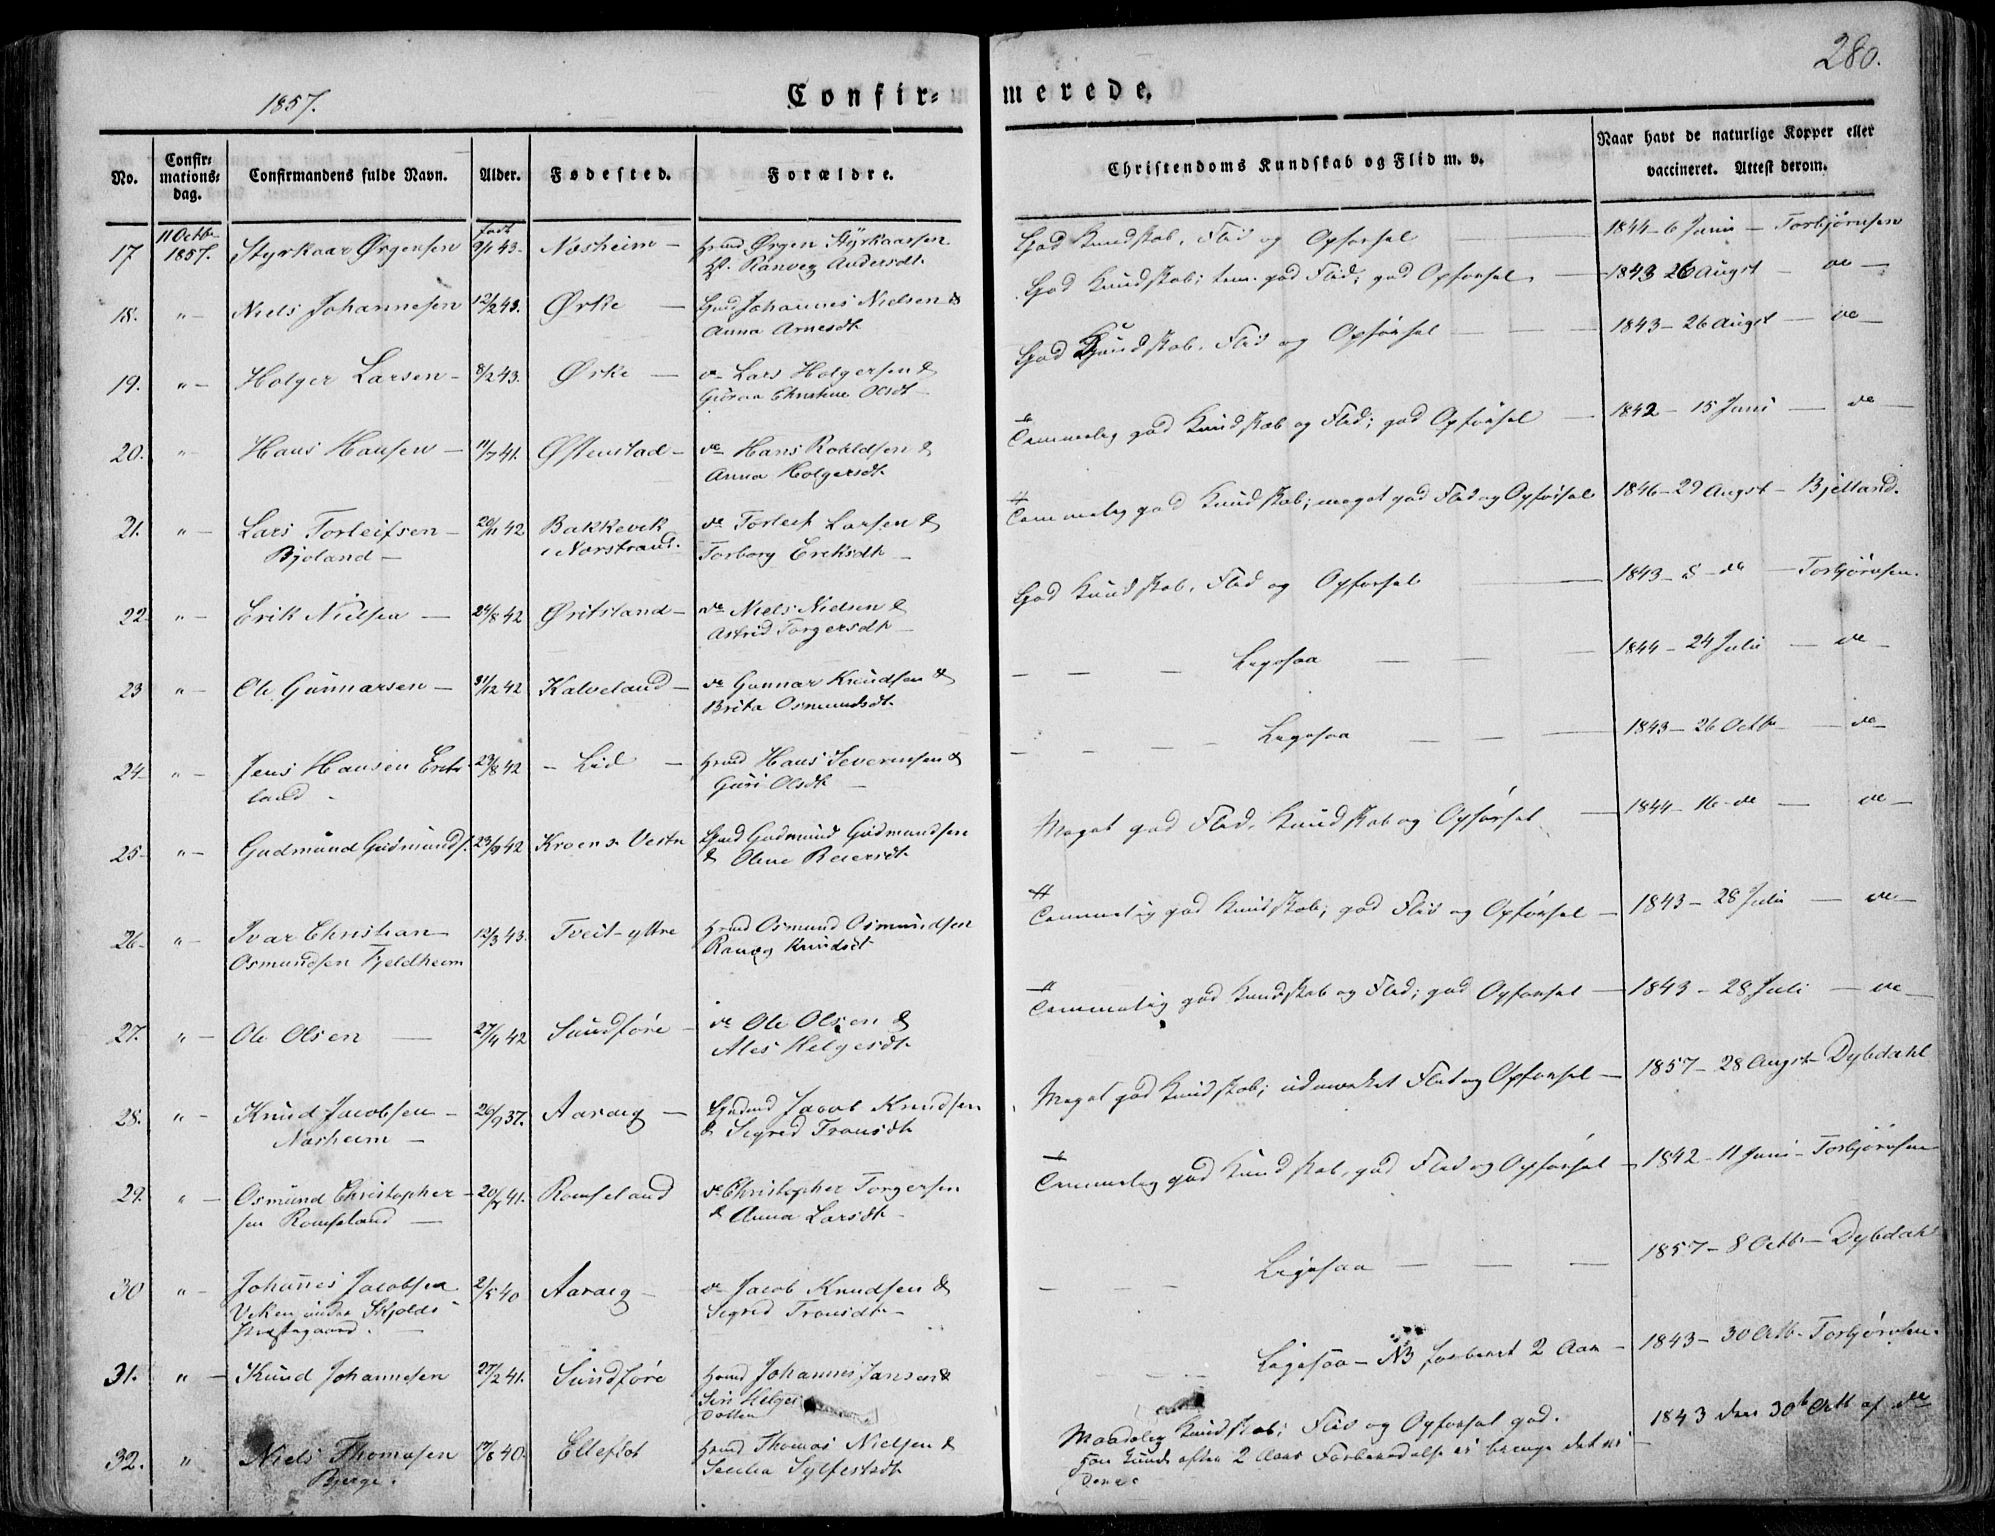 280.
1857.
Confir- merede.
No.
Confir-
mations-
dag.
Confirmandens fulde Navn.
Alder.
Fødested.
Forældre.
Christendoms Kundskab og Flid m. v.
Naar havt de naturlige Kopper eller
vaccineret. Attest derom.
17 11 Octbr 1857. Styrkaar Ørgensen født 9/1 43. Næsheim - Hmd Ørgen Styrkaarsen
Ranveg Andersdt.
God Kundskab, Flid og Opførsel 1844 - 6 Juni - Torbjørnsen
18. " - Niels Johannesen 12/2 43. Ørke - Gmd Johannes Nielsen &
Anna Arnesdt
God Kundskab; tem. god Flid; god Opførsel - 1843 26 Augst - do -
19. " - Holger Larsen - 8/2 43. Ørke - do Lars Holgersen &
Christine Olsdt -
God Kundskab, Flid og Opførsel - 1843 - 26 Augst - do -
20. " Hans Hansen - 11/7 41. Østenstad - do Hans Roaldsen &
Anna Holgersdt.
Temmelig god Kundskab og Flid; god Opførsel - 1842 - 15 Juni - do -
21. " - Lars Torleifsen - 20/11 42 Bakkevik do Torleif Larsen &
Bjoland - i Narstrand. Torborg Eriksdt -
Temmelig god Kundskab; meget god Flid og Opførsel 1846 - 29 Augst - Bjelland.
22 " - Erik Nielsen - 24/8 42 Øritsland - do Niels Nielsen &
Astrid Torgersdt -
God Kundskab, Flid og Opførsel - 1843 - 8 - do - Torbjørnsen.
23 " - Ole Gunnarsen - 31/12 42 Kalveland - do Gunnar Knudsen &
Brita Osmundsdt.
- - - Ligesaa - - - 1844 - 24 Juli - do -
24 " - Jens Hansen Erits- 23/8 42 - Lid - Hmd Hans Severinsen &
land - Guri Olsdt -
- - - Ligesaa - - - 1843 - 26 Octb - do -
25 " - Gudmund Gudmunds. 23/9 42 Kroen s. Gmd Gudmund Gudmundsen
& Oline Reiersdt.
Meget god Flid, Kundskab og Opførsel - 1844 - 16 - do - do -
26 " - Ivar Christian 12/3 43. Tveit - yttre Hmd Osmund Osmundsen
Osmundsen Fjeldheim Ranveg Knudsdt
Temmelig god Kundskab; god Flid og Opførsel - 1843 - 28 Juli - do -
27. " - Ole Olsen - 27/11 42 Sundføre - do Ole Olsen &
Ales Helgesdt.
Temmelig god Kundskab og Flid; god Opførsel - 1843 - 28 Juli - do -
28. " - Knud Jacobsen - 26/9 37. Aaraeg - Gmd Jacob Knudsen
Næsheim - & Sigrid Tronsdt.
Meget god Kundskab; udmærket Flid og Opførsel - 1857 - 28 Augst - Dybdahl
29. " - Osmund Christopher- 41. Romseland do Christopher Torgersen
sen Romseland - & Anna Larsdt -
Temmelig god Kundskab, god Flid og Opførsel - 1842 - 11 Juni - Torbjørnsen
30 " - Johannes Jacobsen 2/5 40 Aaraeg - do Jacob Knudsen &
Viken under Skjolds Sigrid Tronsdt -
Præstegaard. -
- - Ligesaa - - - 1857 - 8 Octb - Dybdahl
31. " - Knud Johannesen 27/2 41. Sundføre Hmd Johannes Jansen &
Siri Helges
datter
Ligesaa - NB forberedt 2 Aar - 1843 - 30 Octb - Torbjørnsen.
32. " Niels Thomasen 40. Ellefsøt Hmd Thomas Nielsen &
Bjerge. Secilia Sylfestsdt
Maadelig Kundskab; Flid og Opførsel god. 1843 den 30te Octb af do
Han kunde efter 2 Aars Forberedelse ei bringe det vi-
dere.